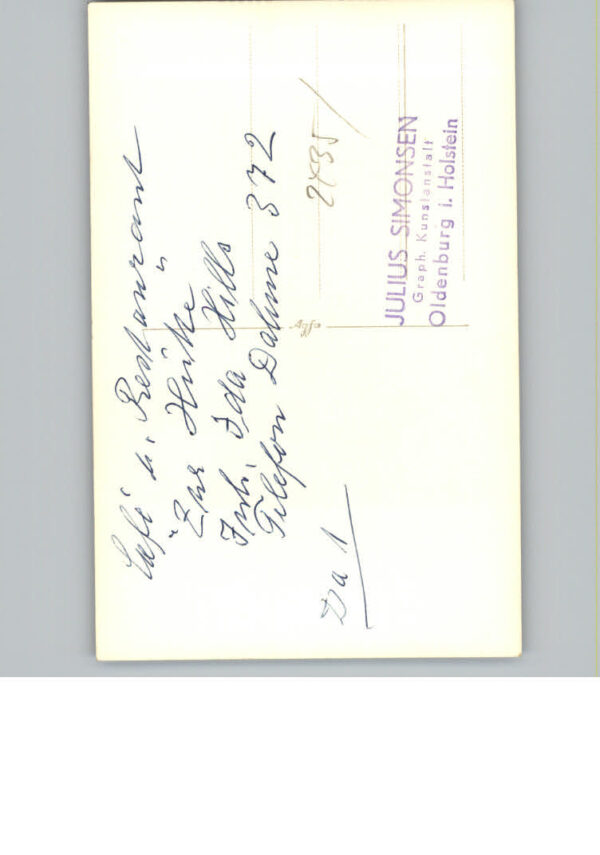 Café u. Restaurant
"Zur Hütte"
Inh. Ida Hills
Telefon Dahme 372
Da 1
Agfa
2435/
JULIUS SIMONSEN
Graph. Kunstanstalt
Oldenburg i. Holstein